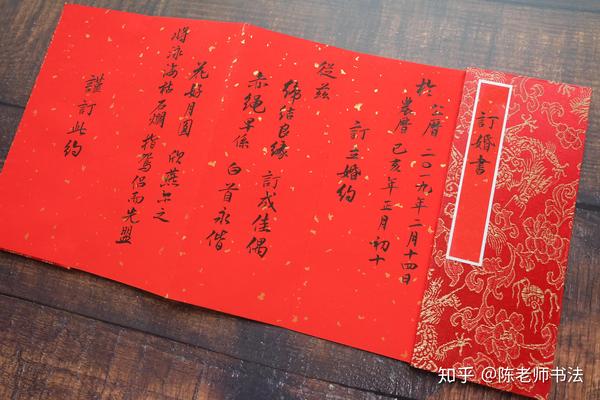 訂婚書
於公曆 二〇一九年二月十四日
農曆 己亥年 正月初十
訂立婚約
從兹
締结良緣 訂成佳偶
赤绳早係 白首永偕
花好月圆 欣燕尔之
将泳海枯石爛 指鸳侣而先盟
謹訂此約
知乎 @陈老师书法